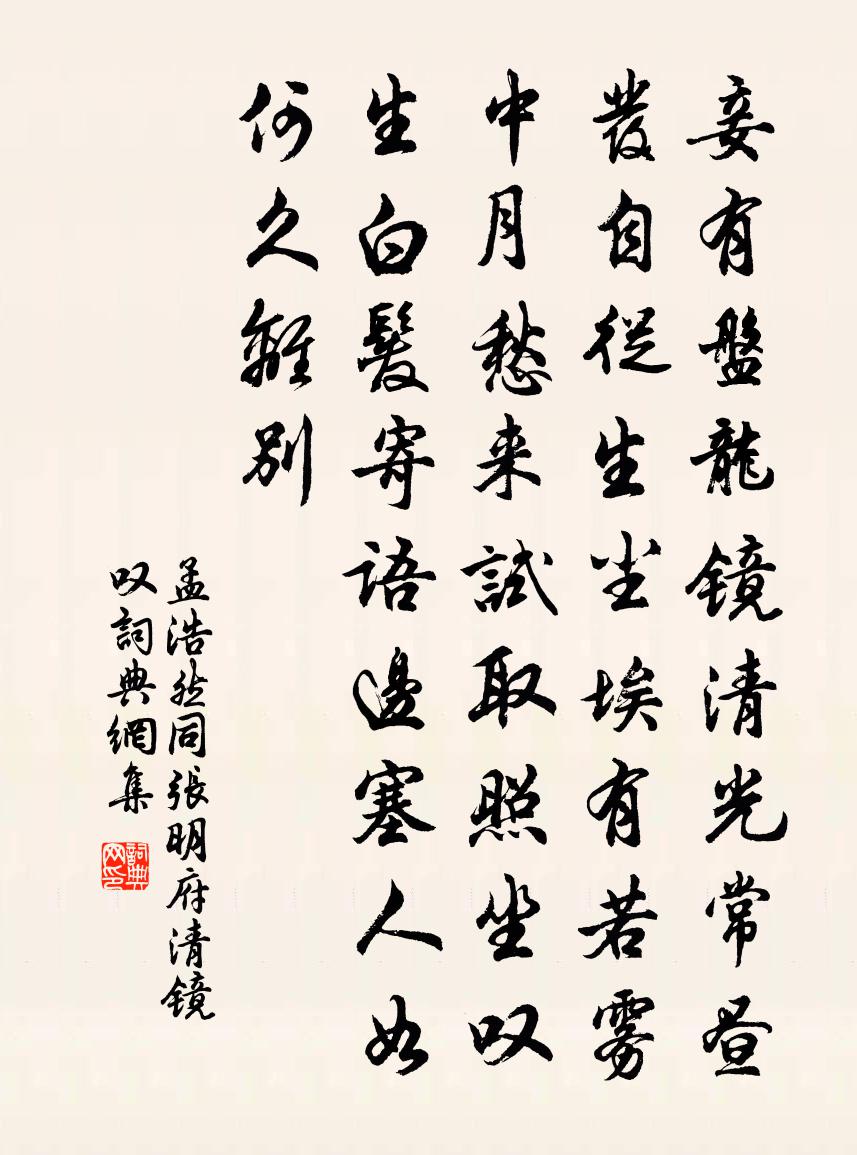 妾有盤龍镜清光常昼
發自從生尘埃有若雾
中月愁来試取照坐叹
生白髮寄语邊塞人如
何久離别
孟浩然同張明府清镜
叹詞典網集
詞典网印